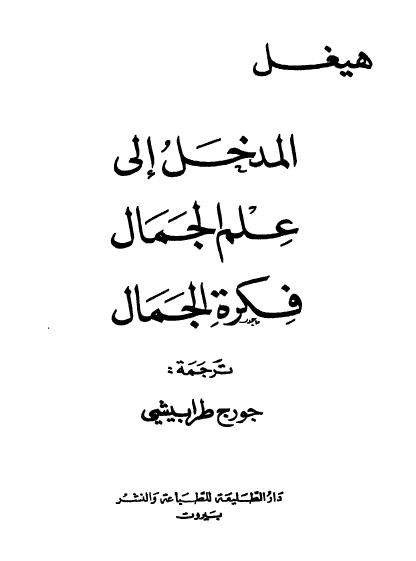 هيغل
المدخل إلى
علم الجمال
فكرة الجمال
ترجمة:
جورج طرابيشي
دار الطليعة للطباعة والنشر
بيروت